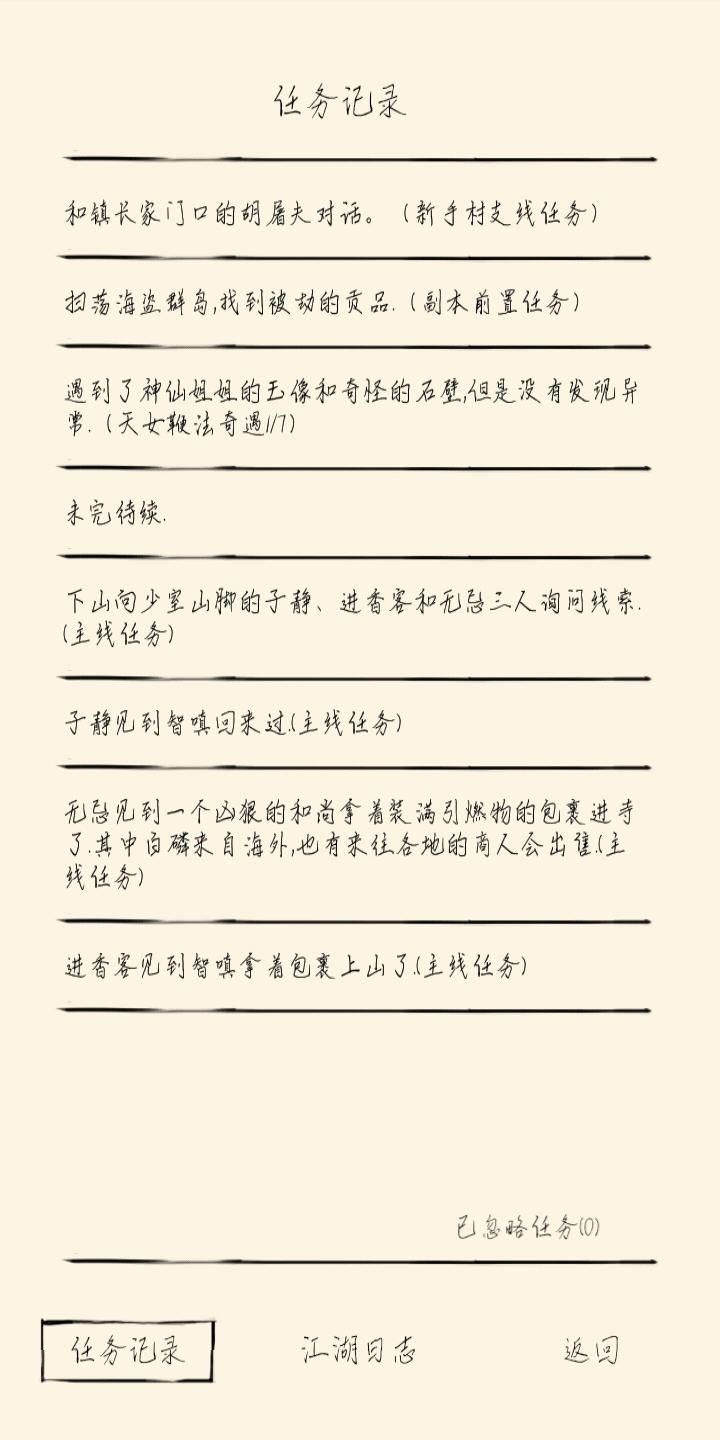 任务记录
和镇长家门口的胡屠夫对话。（新手村支线任务）
扫荡海盗群岛,找到被劫的贡品.（副本前置任务）
遇到了神仙姐姐的玉像和奇怪的石壁,但是没有发现异
常.（天女鞭法奇遇1/7）
未完待续.
下山向少室山脚的子静、进香客和无忌三人询问线索.
(主线任务)
子静见到智嗔回来过.(主线任务)
无忌见到一个凶狠的和尚拿着装满引燃物的包裹进寺
了.其中白磷来自海外,也有来往各地的商人会出售.(主
线任务)
进香客见到智嗔拿着包裹上山了.(主线任务)
已忽略任务(0)
任务记录
江湖日志
返回